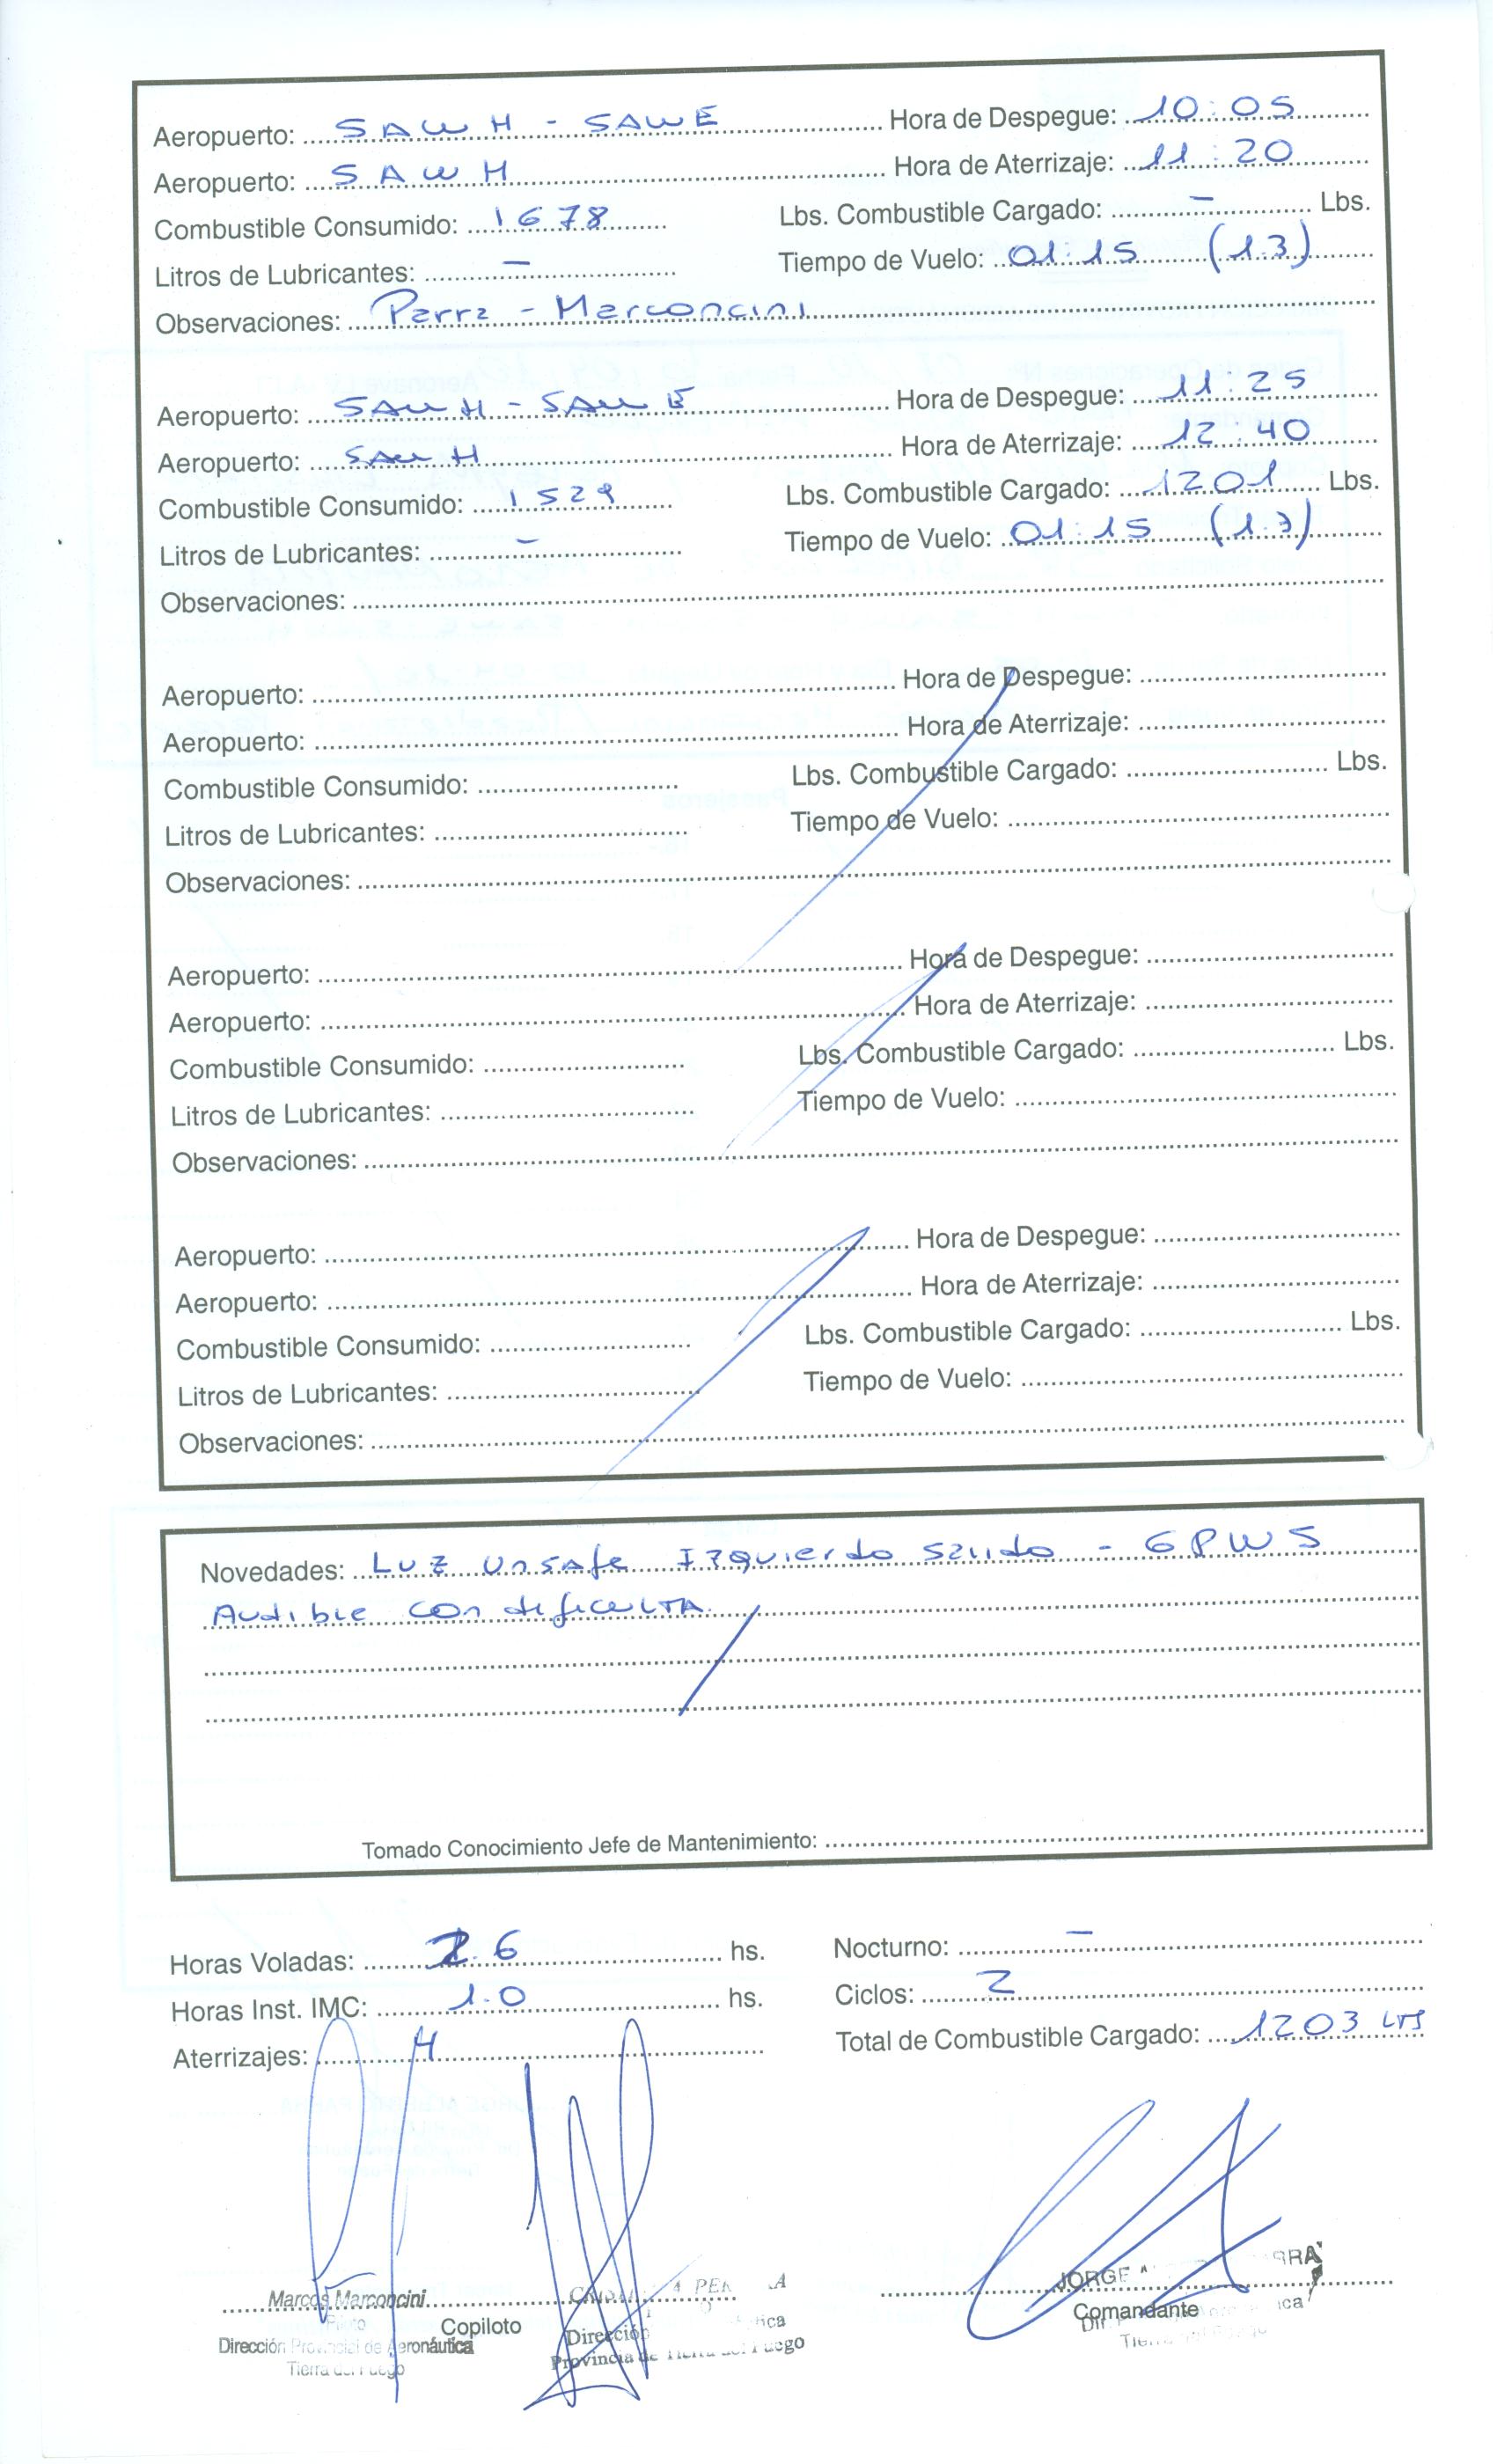 Aeropuerto: SAWH - SAWE Hora de Despegue: 10:05
Aeropuerto: SAWH Hora de Aterrizaje: 11:20
Combustible Consumido: 1678 Lbs. Combustible Cargado: - Lbs.
Litros de Lubricantes: - Tiempo de Vuelo: 01:15 (1.3)
Observaciones: Parra - Marconcini
Aeropuerto: SAWH - SAWE Hora de Despegue: 11:25
Aeropuerto: SAWH Hora de Aterrizaje: 12:40
Combustible Consumido: 1529 Lbs. Combustible Cargado: 1201 Lbs.
Litros de Lubricantes: - Tiempo de Vuelo: 01:15 (1.3)
Observaciones:
Aeropuerto: Hora de Despegue:
Aeropuerto: Hora de Aterrizaje:
Combustible Consumido: Lbs. Combustible Cargado: Lbs.
Litros de Lubricantes: Tiempo de Vuelo:
Observaciones:
Aeropuerto: Hora de Despegue:
Aeropuerto: Hora de Aterrizaje:
Combustible Consumido: Lbs. Combustible Cargado: Lbs.
Litros de Lubricantes: Tiempo de Vuelo:
Observaciones:
Aeropuerto: Hora de Despegue:
Aeropuerto: Hora de Aterrizaje:
Combustible Consumido: Lbs. Combustible Cargado: Lbs.
Litros de Lubricantes: Tiempo de Vuelo:
Observaciones:
Novedades: Luz unsafe Izquierdo - GPWS
Audible con dificulta
Tomado Conocimiento Jefe de Mantenimiento:
Horas Voladas: 2.6 hs. Nocturno: -
Horas Inst. IMC: 1.0 hs. Ciclos: 2
Aterrizajes: 4 Total de Combustible Cargado: 1203 LTS
Marcos Marconcini JORGE
Piloto Copiloto Comandante
Dirección Provincial de Aeronáutica Dirección
Tierra del Fuego Provincia de Tierra del Fuego Tierra del Fuego